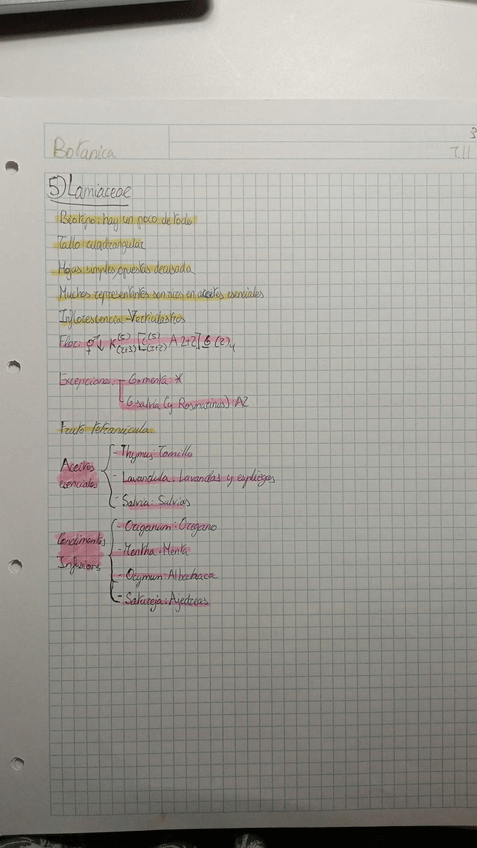 Botanica
5) Lamiaceae
Biotipo: hay un poco de todo
Tallo cuadrangular
Hojas simples, opuestas decusada
Muchos representantes son ricos en aceites esenciales
Inflorescencia - Verticilastros
Flor: K(5) (2+3) [C(5) (3+2) A 2+2] G (2)
Excepciones: - G. menta: *
G. salvia (y Rosmarinus) A2
Fruto tetranúcula
Aceites esenciales
- Thymus: Tomillo
- Lavandula: Lavandas y espliegos
- Salvia: Salvias
Condimentos Infusiones
- Origanum: Oregano
- Mentha: Menta
- Ocymun: Albahaca
- Satureja: Ajedreas